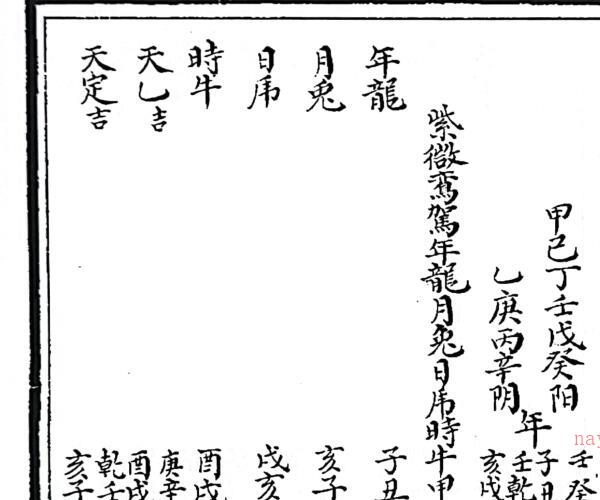 壬癸
甲己丁壬戊癸阳
年
子丑
乙庚丙辛阴
壬乾
亥戌
紫微鸾駕年龍月兔日虎時牛甲
年龍
子丑
月兔
亥子
日虎
戌亥
時牛
酉戌
天乙吉
庚辛
酉戌
天定吉
乾壬
亥子
nay